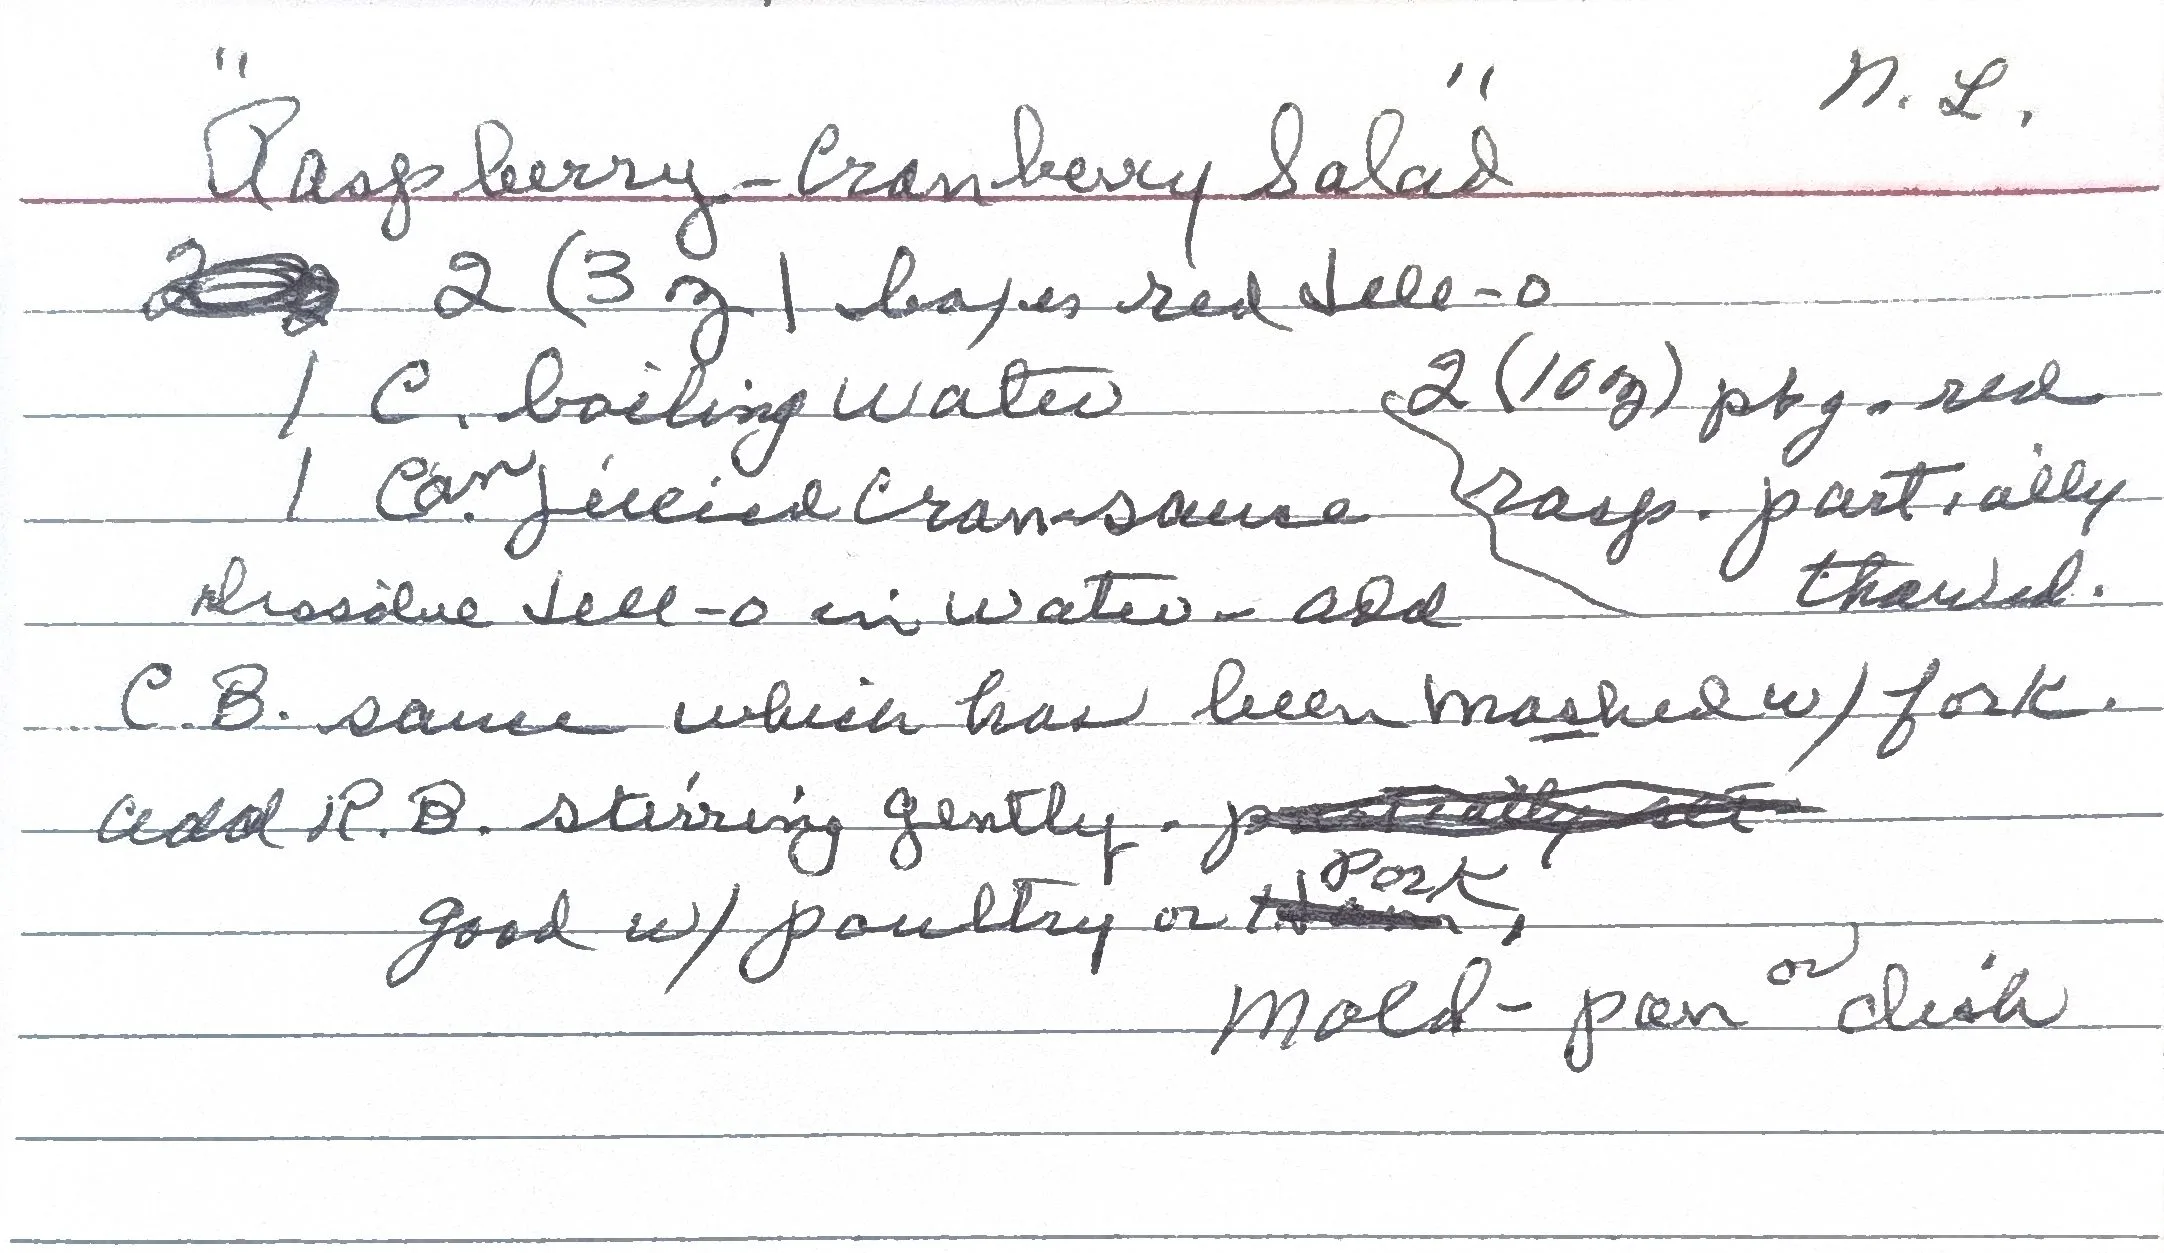 "Raspberry-Cranberry Salad" N. L.
2 (3 oz) boxes red Jell-o
1 C. boiling water
2 (10 oz) pkg. red
1 can jellied Cran-sauce
rasp. partially
thawed.
Dissolve Jell-o in water - add
C.B. sauce which has been mashed w/ fork.
add R.B. stirring gently.
good w/ poultry or Pork,
Mold - pan or dish